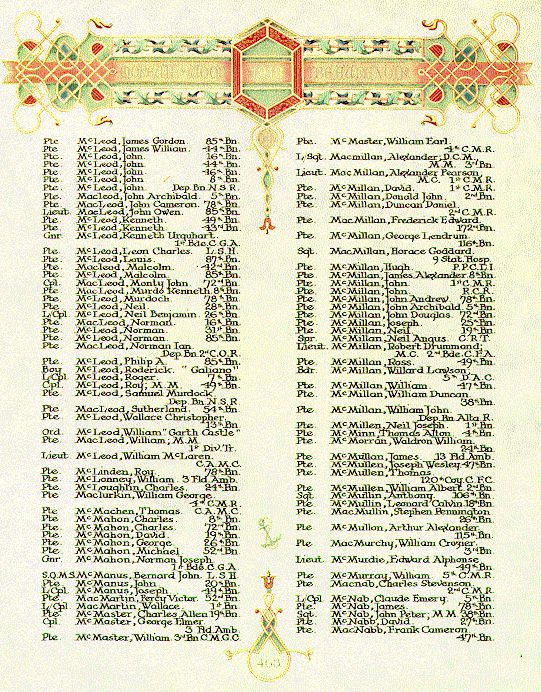 Pte McLeod, James Gordon. 85th Bn.
Pte McLeod, James William. 44th Bn.
Pte McLeod, John. 16th Bn.
Pte. McLeod, John. 44th Bn.
Pte. McLeod, John. 46th Bn.
Pte McLeod, John. 8th Bn.
Pte McLeod, John. Dep. Bn. N.S.R.
Pte Macleod, John Archibald. 5th Bn.
Pte. MacLeod, John Cameron. 78th Bn.
Lieut. MacLeod, John Owen. 85th Bn.
Pte McLeod, Kenneth. 49th Bn.
Pte. McLeod, Kenneth. 43rd Bn.
Gnr. McLeod, Kenneth Urquhart.
1st Bde. C.G.A.
Pte. McLeod, Leon Charles. L.S.H.
Pte. McLeod, Louis. 87th Bn.
Pte. Macleod, Malcolm. 42nd Bn.
Pte McLeod, Malcolm. 85th Bn.
Cpl. MacLeod, Monty John. 72nd Bn.
Pte MacLeod, Murdo Kenneth. 8th Bn.
Pte. McLeod, Murdoch. 78th Bn.
Pte. McLeod, Neil. 28th Bn.
L/Cpl McLeod, Neil Benjamin. 26th Bn.
Pte. MacLeod, Norman. 16th Bn.
Pte. McLeod, Norman. 31st Bn.
Pte. McLeod, Norman. 85th Bn.
Pte MacLeod, Norman Ian.
Dep. Bn. 2nd C.O.R.
Pte. McLeod, Philip A. 85th Bn.
Boy McLeod, Roderick. "Galiano"
L/Cpl. McLeod, Roger. 7th Bn.
Cpl. McLeod, Roy; M.M. 49th Bn.
Pte McLeod, Samuel Murdock.
Dep. Bn. N.S.R.
Pte MacLeod, Sutherland. 54th Bn.
Pte McLeod, Wallace Christopher.
13th Bn.
Ord. McLeod, William "Garth Castle"
Pte MacLeod, William; M.M.
1st Div. Tr.
Lieut McLeod, William McLaren.
C.A.M.C.
Pte. McLinden, Roy. 78th Bn.
Pte McLonney, William. 3 Fld Amb.
Pte. McLoughlin, Charles. 24th Bn.
Pte Maclurkin, William George.
4th C.M.R.
Pte McMachen, Thomas. C.A.M.C.
Pte. McMahon, Charles. 8th Bn.
Pte. McMahon, Charles. 72nd Bn.
Pte. McMahon, David. 19th Bn.
Pte. McMahon, George. 26th Bn.
Pte. McMahon, Michael. 52nd Bn.
Gnr. McMahon, Norman Joseph.
1st Bde. C.G.A.
S.Q.M.S. McManus, Bernard John. L.S.H.
Pte McManus, John. 20th Bn.
L/Cpl McManus, Joseph. 49th Bn.
Pte MacMartin, Percy Victor. 52nd Bn.
L/Cpl MacMartin, Wallace. 1st Bn.
Pte McMaster, Charles Allen 19th Bn.
Cpl McMaster, George Elmer.
3 Fld Amb.
Pte. McMaster, William. 3rd Bn C.M.G.C.
Pte. McMaster, William Earl.
4th C.M.R.
L/Sgt. Macmillan, Alexander; D.C.M.,
M.M. 3rd Bn.
Lieut. MacMillan, Alexander Pearson,
M.C. 1st C.M.R.
Pte. McMillan, David. 1st C.M.R.
Pte. McMillan, Donald John. 2nd Bn.
Pte McMillan, Duncan Daniel.
2nd C.M.R.
Pte. MacMillan, Frederick Edward.
172nd Bn.
Pte. McMillan, George Lendrum.
116th Bn.
Sgt. MacMillan, Horace Goddard.
9 Stat. Hosp.
Pte McMillan, Hugh. P.P.C.L.I.
Pte McMillan, James Alexander. 8th Bn.
Pte McMillan, John. 1st C.M.R.
Pte McMillan, John. R.C.R.
Pte McMillan, John Andrew. 78th Bn.
Pte McMillan, John Archibald. 5th Bn.
Pte McMillan, John Douglas. 72nd Bn.
Pte McMillan, Joseph. 25th Bn.
Pte McMillan, Neil. 19th Bn.
Spr. McMillan, Neil Angus. C.R.T.
Lieut. McMillan, Robert Drummond;
M.C. 2nd Bde. C.F.A.
Pte. McMillan, Ross. 49th Bn.
Bdr. McMillan, Willard Lawson;
5th D.A.C.
Pte. McMillan, William. 47th Bn.
Pte. McMillan, William Duncan
38th Bn.
Pte. McMillan, William John
Dep. Bn. Alta R.
Pte. McMillen, Neil Joseph. 1st Bn.
Pte McMinn, Thomas Afton. 4th Bn.
Pte. McMorran, Waldron William.
24th Bn.
Pte. McMullan, James. 13 Fld Amb.
Pte. McMullen, Joseph Wesley. 47th Bn.
Pte. McMullen, Thomas.
120th Coy. C.F.C.
Pte. McMullen, William Albert. 2nd Bn.
Sgt. McMullin, Anthony. 106th Bn.
Pte. McMullin, Leonard Calvin. 18th Bn.
Pte. MacMullin, Stephen Pennington
26th Bn.
Pte. McMullon, Arthur Alexander.
115th Bn.
Pte MacMurchy, William Crozier.
3rd Bn.
Lieut. McMurdie, Edward Alphonse.
49th Bn.
Pte. McMurray, William. 5th C.M.R.
Pte. Macnab, Charles Stevenson.
2nd C.M.R.
L/Cpl McNab, Claude Emery. 5th Bn.
Pte McNab, James. 78th Bn.
Sgt. McNab, John Peter; M.M. 38th Bn.
Pte. McNabb, David. 27th Bn.
Pte. MacNabb, Frank Cameron.
47th Bn.
463